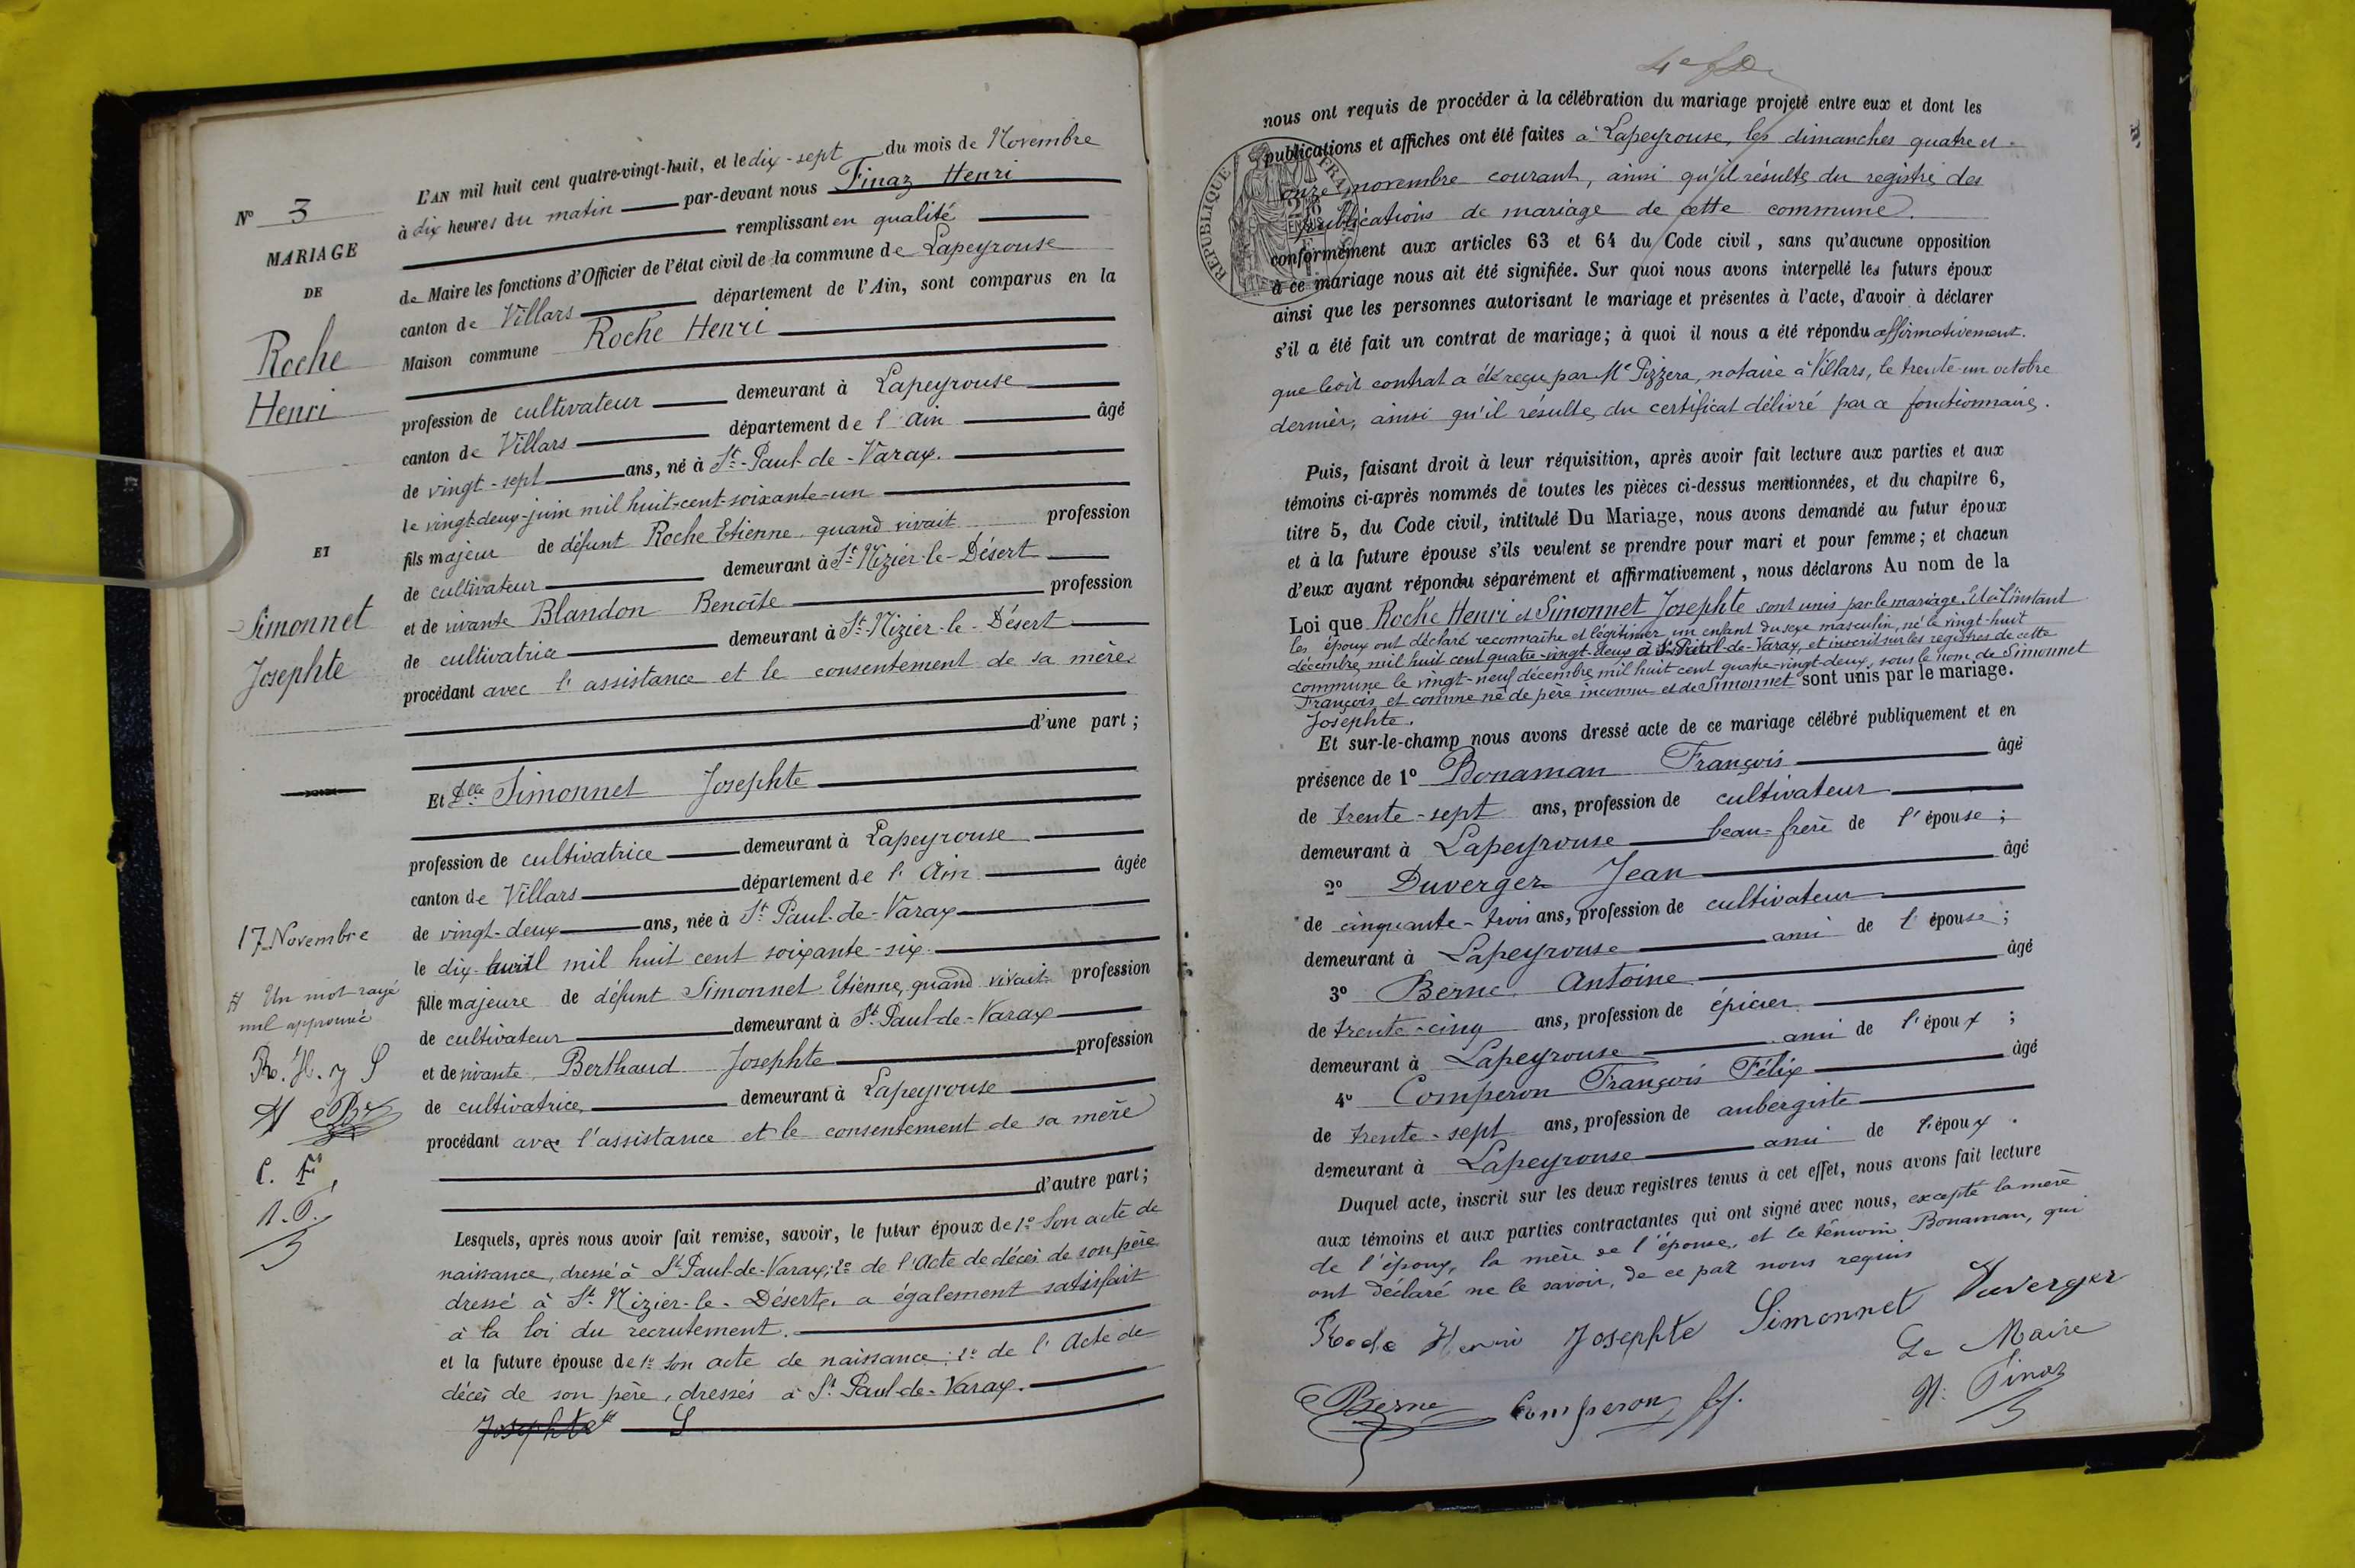 N° 3
MARIAGE
DE
Roche
Henri
ET
Simonnet
Josephte
17 Novembre
# Un mot rayé
nul approuvé
R. H. J S
C. F.
L'AN mil huit cent quatre-vingt-huit, et le dix-sept du mois de Novembre
à dix heures du matin par-devant nous Finaz Henri
remplissant en qualité
de Maire les fonctions d'Officier de l'état civil de la commune de Lapeyrouse
canton de Villars département de l'Ain, sont comparus en la
Maison commune Roche Henri
profession de cultivateur demeurant à Lapeyrouse
canton de Villars département de l'Ain âgé
de vingt-sept ans, né à St-Paul-de-Varax.
le vingt-deux-juin mil huit-cent-soixante-un
fils majeur de défunt Roche Etienne, quand vivait profession
de cultivateur demeurant à St-Nizier-le-Désert
et de vivante Blandon Benoîte profession
de cultivatrice demeurant à St-Nizier-le-Désert
procédant avec l'assistance et le consentement de sa mère
d'une part;
Et Dlle Simonnet Josephte
profession de cultivatrice demeurant à Lapeyrouse
canton de Villars département de l'Ain âgée
de vingt-deux ans, née à St-Paul-de-Varax
le dix-avril mil huit cent soixante-six.
fille majeure de défunt Simonnet Etienne, quand vivait profession
de cultivateur demeurant à St-Paul-de-Varax
et de vivante Berthaud Josephte profession
de cultivatrice demeurant à Lapeyrouse
procédant avec l'assistance et le consentement de sa mère
d'autre part;
Lesquels, après nous avoir fait remise, savoir, le futur époux de 1° Son acte de
naissance, dressé à St-Paul-de-Varax; 2° de l'Acte de décès de son père
dressé à St-Nizier-le-Désert. a également satisfait
à la loi du recrutement.
et la future épouse de 1° Son acte de naissance; 2° de l'Acte de
décès de son père, dressés à St-Paul-de-Varax.
Josephte # S
nous ont requis de procéder à la célébration du mariage projeté entre eux et dont les
publications et affiches ont été faites à Lapeyrouse, les dimanches quatre et
onze novembre courant, ainsi qu'il résulte du registre des
publications de mariage de cette commune.
REPUBLIQUE FRAN
conformément aux articles 63 et 64 du Code civil, sans qu'aucune opposition
à ce mariage nous ait été signifiée. Sur quoi nous avons interpellé les futurs époux
ainsi que les personnes autorisant le mariage et présentes à l'acte, d'avoir à déclarer
s'il a été fait un contrat de mariage; à quoi il nous a été répondu affirmativement.
que ledit contrat a été reçu par Me Pizzera, notaire à Villars, le trente-un octobre
dernier, ainsi qu'il résulte du certificat délivré par ce fonctionnaire.
Puis, faisant droit à leur réquisition, après avoir fait lecture aux parties et aux
témoins ci-après nommés de toutes les pièces ci-dessus mentionnées, et du chapitre 6,
titre 5, du Code civil, intitulé Du Mariage, nous avons demandé au futur époux
et à la future épouse s'ils veulent se prendre pour mari et pour femme; et chacun
d'eux ayant répondu séparément et affirmativement, nous déclarons Au nom de la
Loi que Roche Henri et Simonnet Josephte sont unis par le mariage. Et à l'instant
les époux ont déclaré reconnaître et légitimer un enfant du sexe masculin, né le vingt-huit
décembre mil huit cent quatre-vingt-deux à St-Paul-de-Varax, et inscrit sur les registres de cette
commune le vingt-neuf décembre mil huit cent quatre-vingt-deux, sous le nom de Simonnet
François et comme né de père inconnu et de Simonnet sont unis par le mariage.
Josephte.
Et sur-le-champ nous avons dressé acte de ce mariage célébré publiquement et en
présence de 1° Bonaman François âgé
de trente-sept ans, profession de cultivateur
demeurant à Lapeyrouse beau-frère de l'épouse;
2° Duverger Jean âgé
de cinquante-trois ans, profession de cultivateur
demeurant à Lapeyrouse ami de l'épouse;
3° Berne Antoine âgé
de trente-cinq ans, profession de épicier
demeurant à Lapeyrouse ami de l'époux;
4° Comperon François Félix âgé
de trente-sept ans, profession de aubergiste
demeurant à Lapeyrouse ami de l'époux.
Duquel acte, inscrit sur les deux registres tenus à cet effet, nous avons fait lecture
aux témoins et aux parties contractantes qui ont signé avec nous, excepté la mère
de l'époux, la mère de l'épouse, et le témoin Bonaman, qui
ont déclaré ne le savoir, de ce par nous requis
Roche Henri Josephte Simonnet Duverger
Le Maire
Berne Comperon ff. H. Finaz